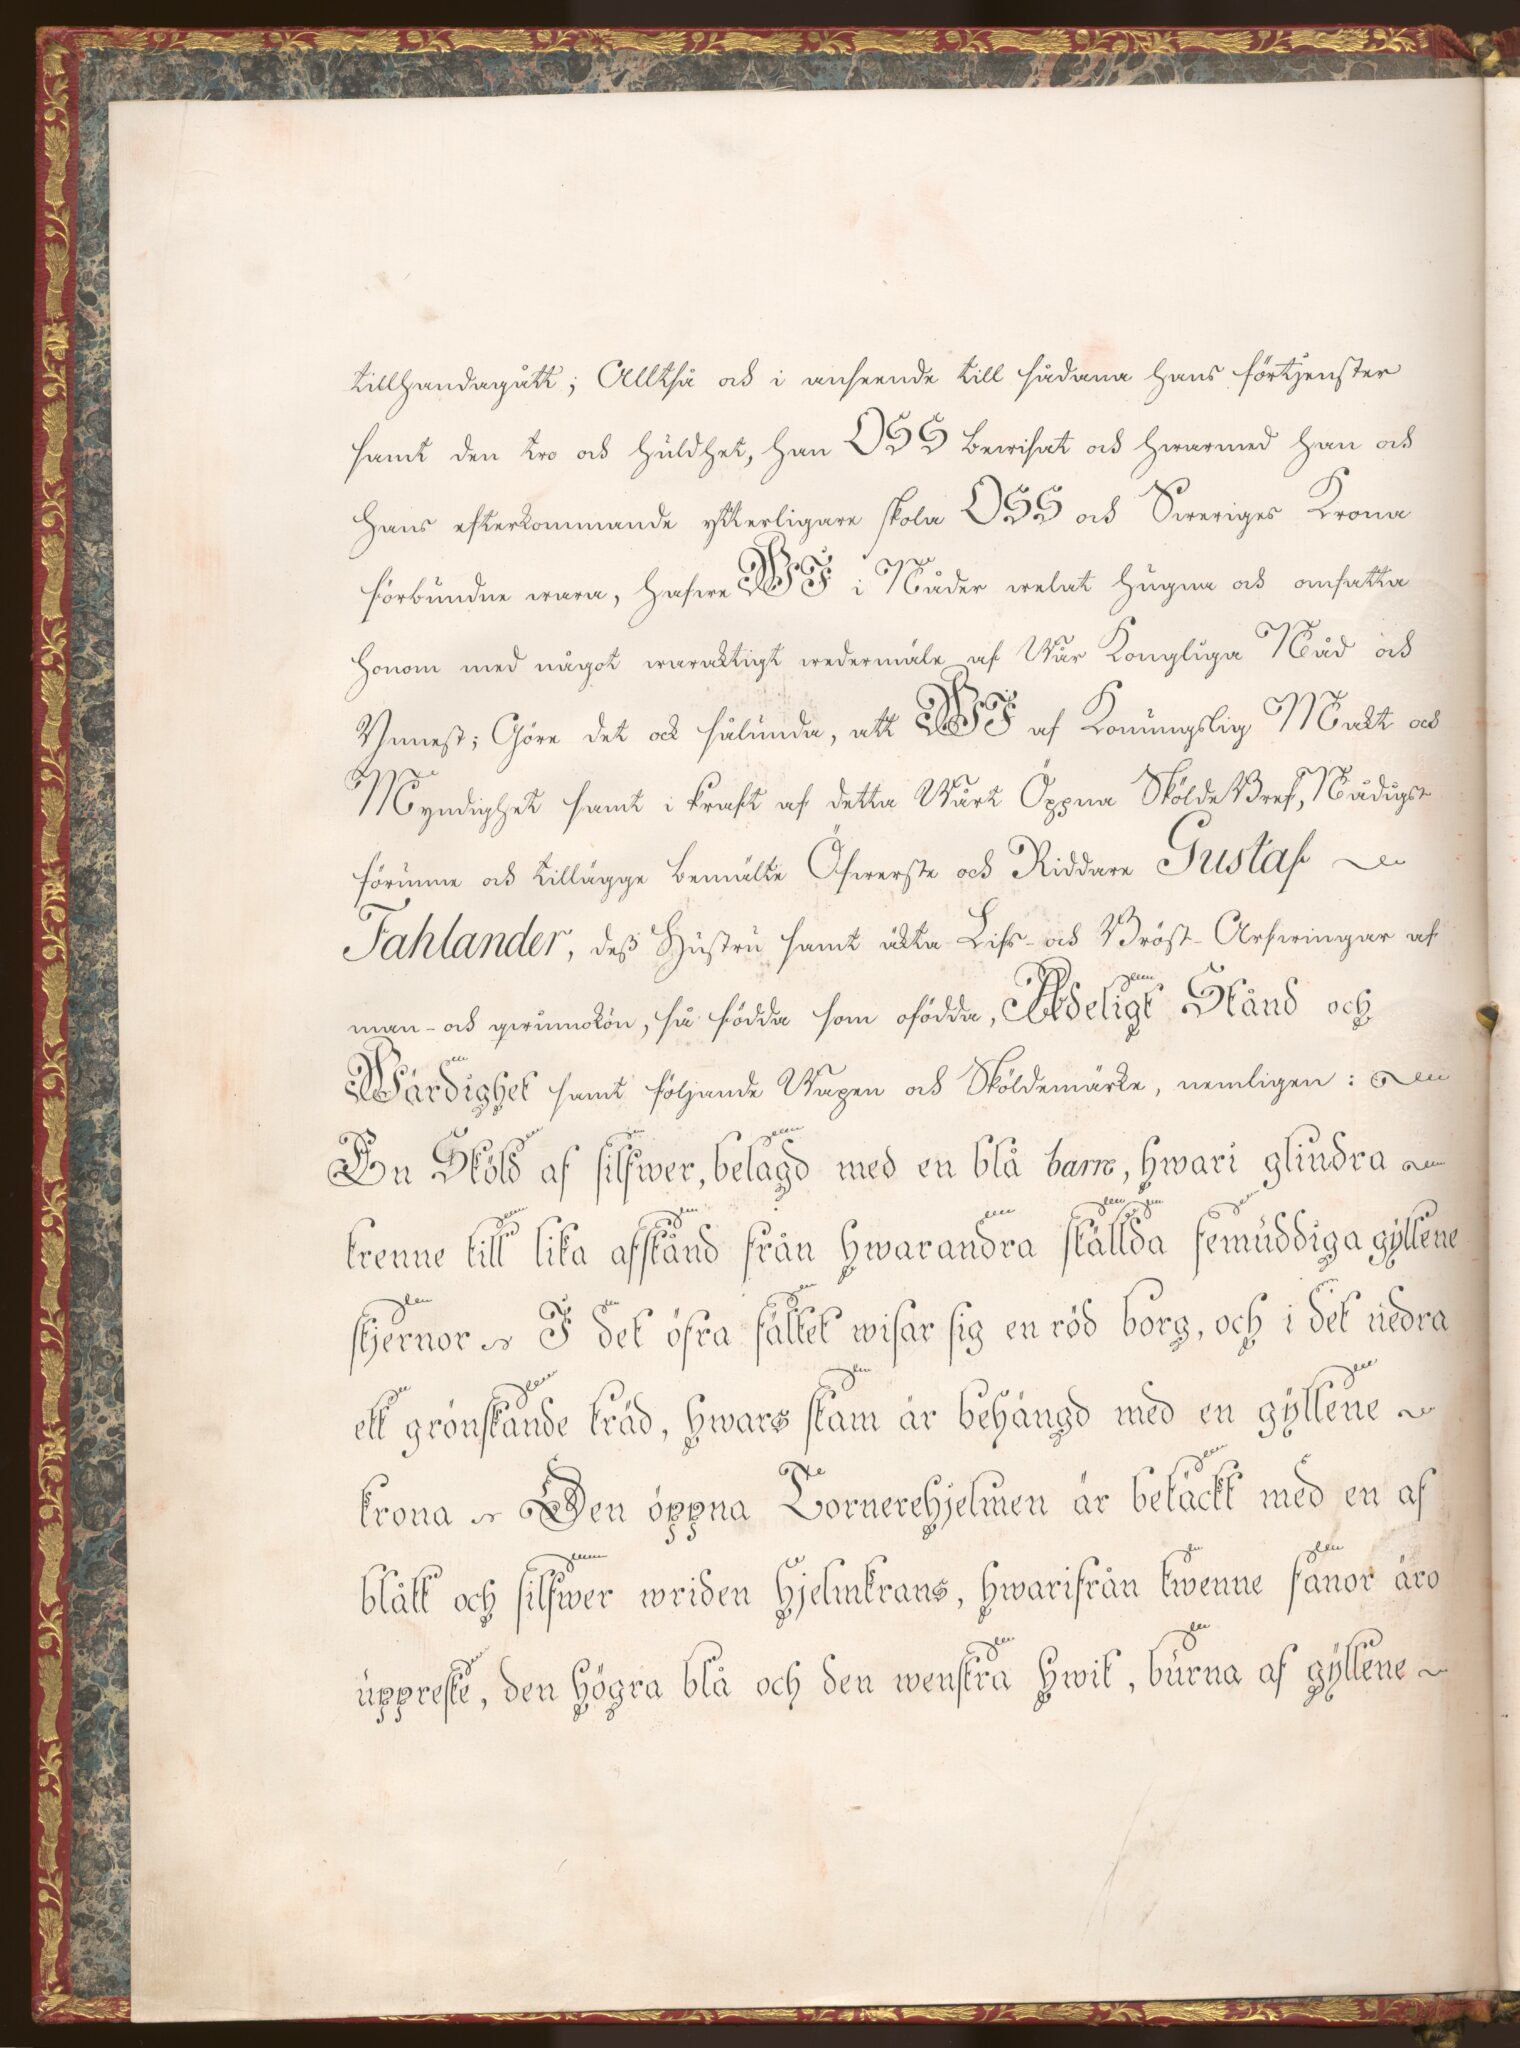 tillhandagått; Alltså och i anseende till sådana hans förtjenster
samt den tro och huldhet, han OSS bewisat och hwarmed han och
hans efterkommande ytterligare skola OSS och Sweriges Krona
förbundne wara, hafwe WI i Nåder welat hugna och omfatta
honom med något waraktigt wedermäle af Wår Kongliga Nåd och
Ynnest; Göre det ock sålunda, att WI af Konungslig Makt och
Myndighet samt i kraft af detta Wårt Öppna SköldeBref, Nådigst
förunne och tillägge bemälte Öfwerste och Riddare Gustaf
Fahlander, deß Hustru samt äkta Lifs- och Bröst-Arfwingar af
man- och qwinnokön, så födda som ofödda, Adeligt Stånd och
Wärdighet samt följande Wapen och Sköldemärke, nemligen:
En Sköld af silfwer, belagd med en blå barre, hwari glindra
trenne till lika afstånd från hwarandra ställda femuddiga gyllene
stjernor. I det öfra fältet wisar sig en röd borg, och i det nedra
ett grönskande träd, hwars stam är behängd med en gyllene
krona. Den öppna Tornerehjelmen är betäckt med en af
blått och silfwer wriden hjelmkrans, hwarifrån twenne fanor äro
uppreste, den högra blå och den wenstra hwit, burna af gyllene